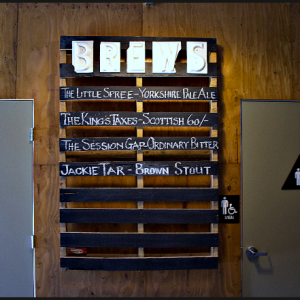 BREWS
THE LITTLE SPREE - YORKSHIRE PALE ALE
THE KING'S TAXES - SCOTTISH 60/-
THE SESSION GAP - ORDINARY BITTER
JACKIE TAR - BROWN STOUT